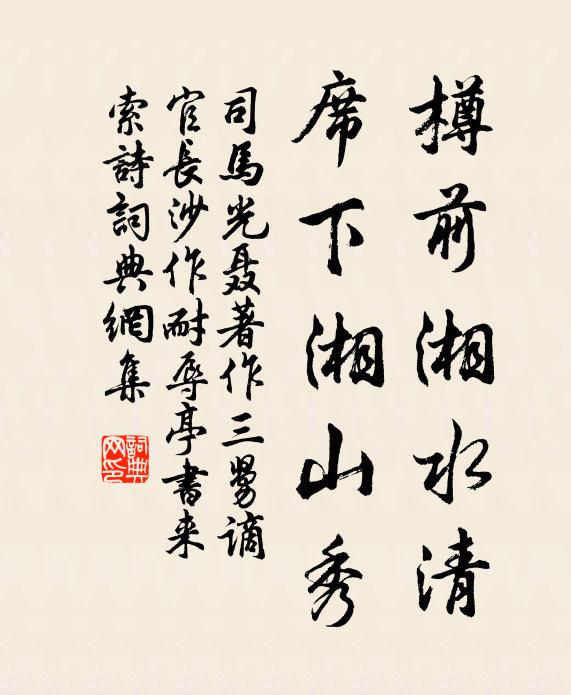 樽前湘水清
席下湘山秀
司馬光聂著作三舅谪
官長沙作耐辱亭書来
索詩詞典網集
詞典网印